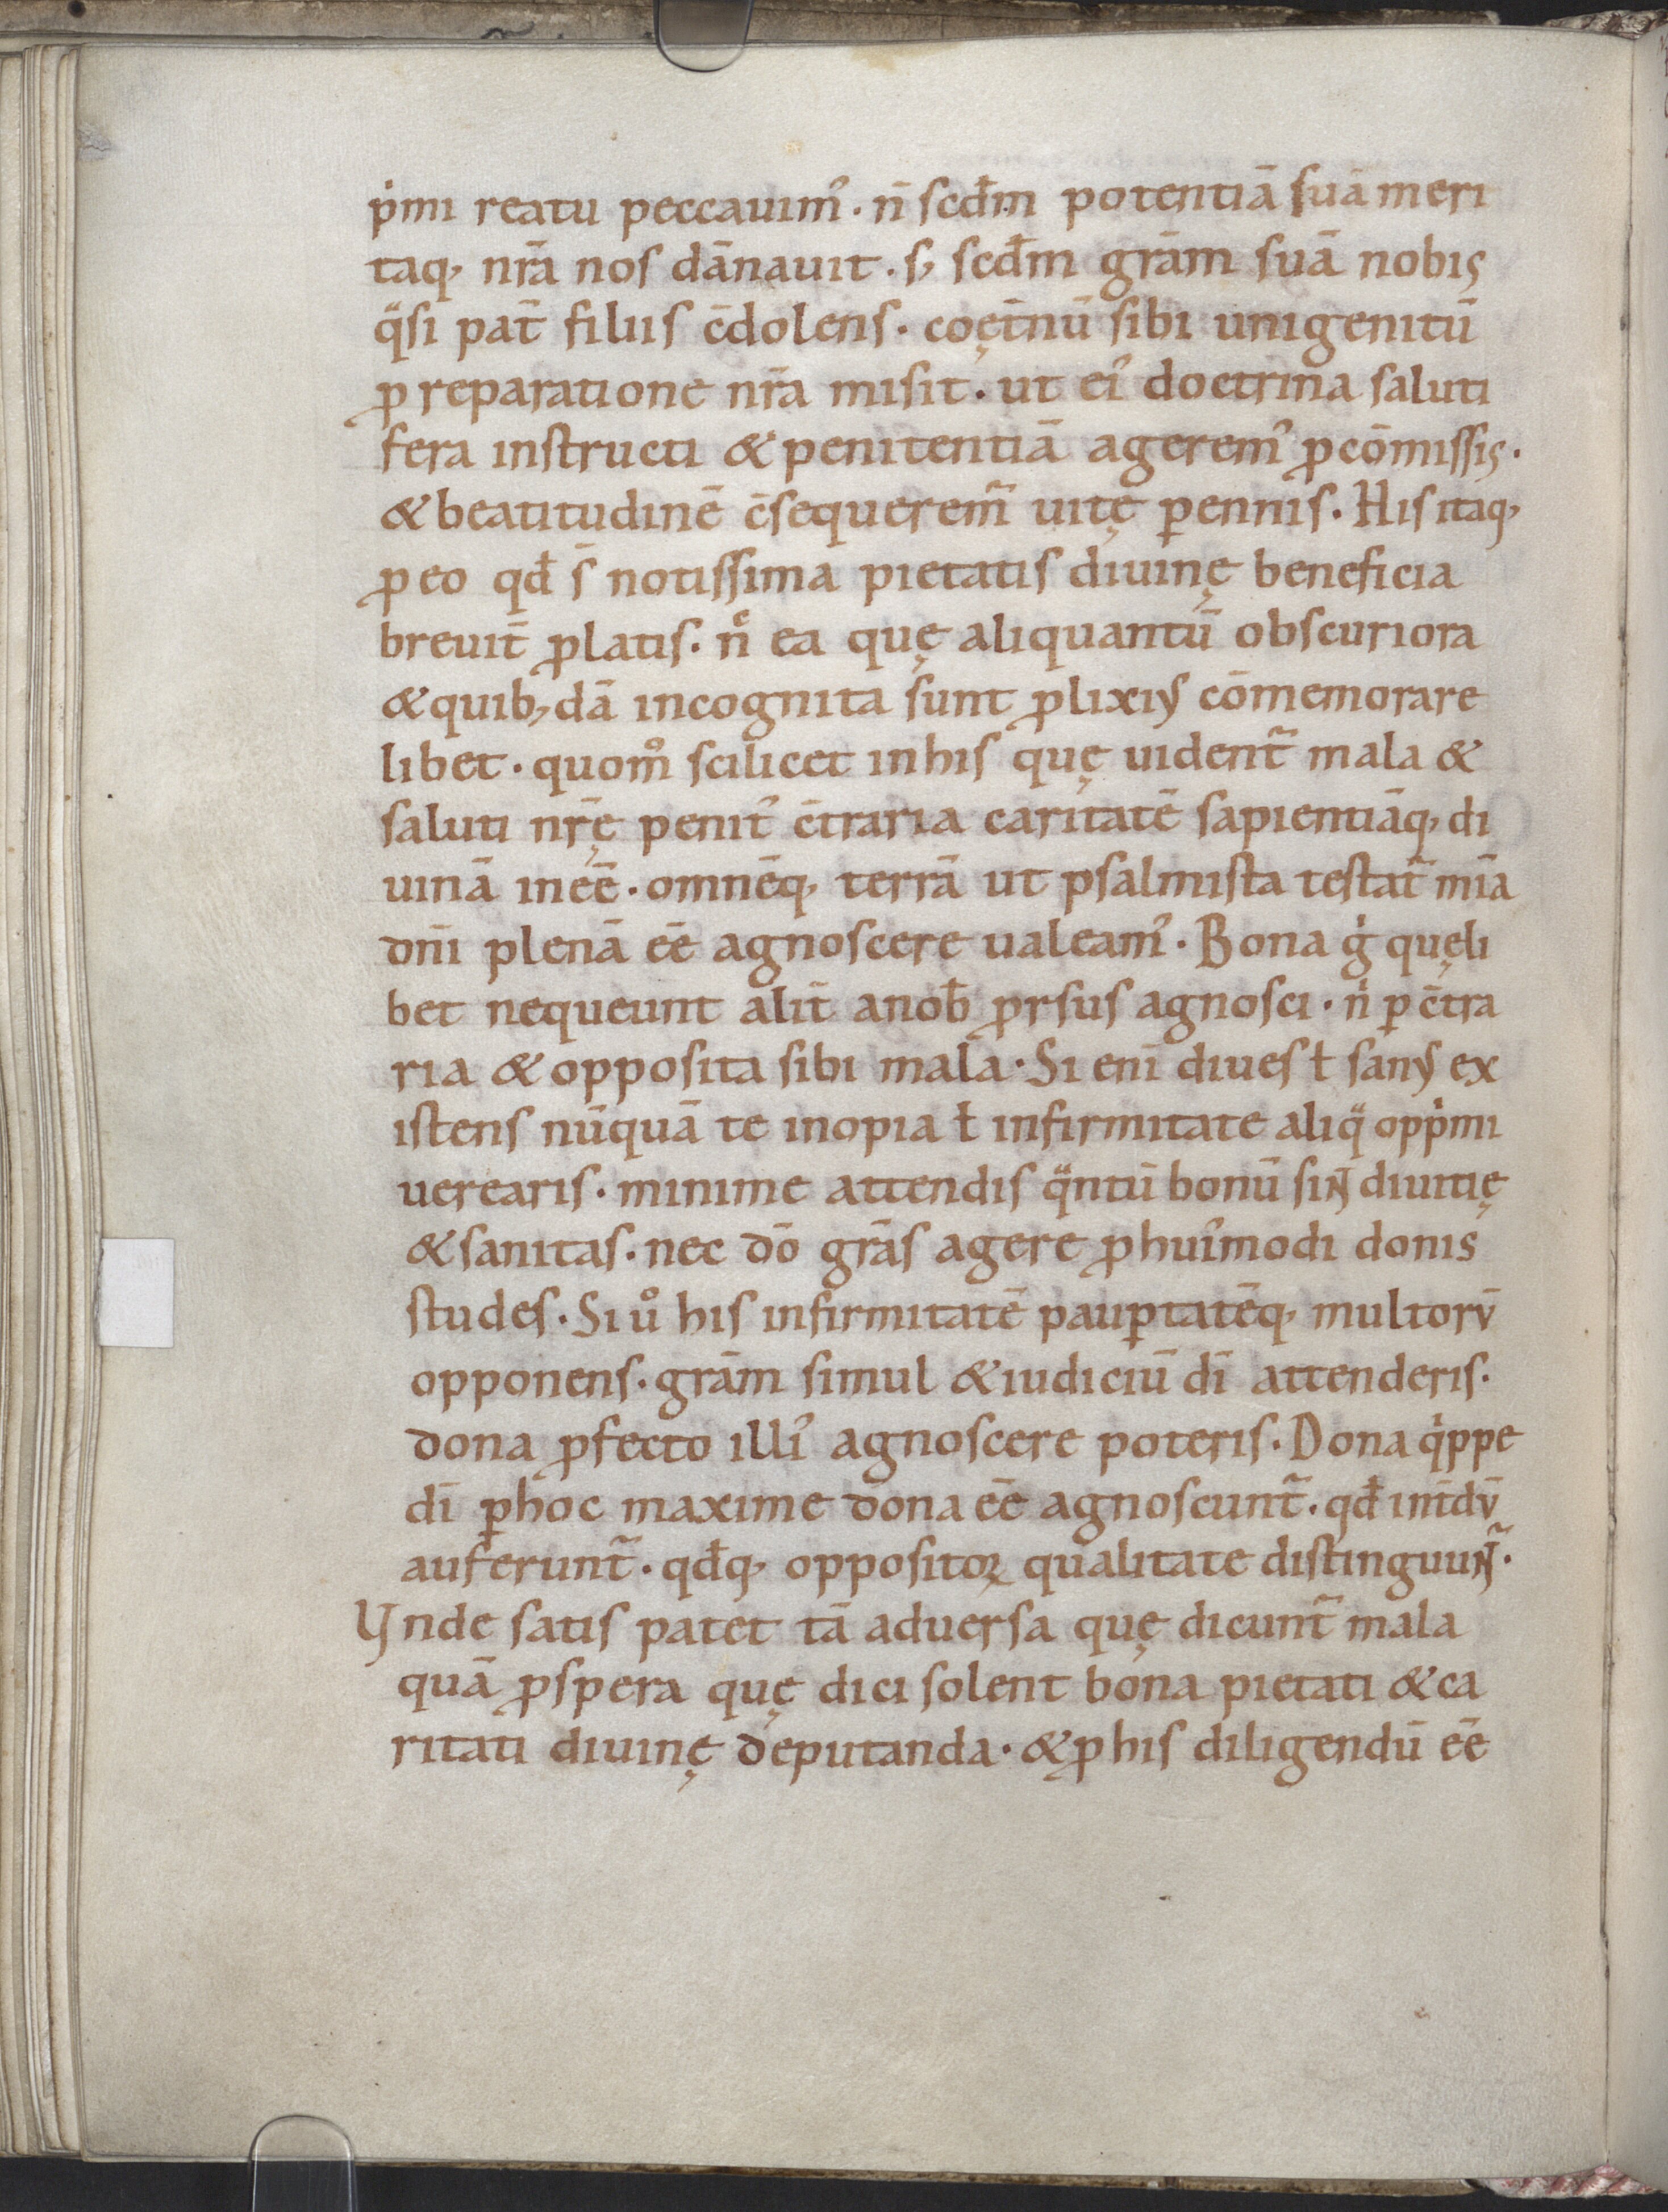 pͥmi reatu peccauimꝰ · n̄ scđm potentiā suā meri
taq; nr̄a nos dānauit · s; scđm grām suā nobis
qͣsi pat̄ filiis c̄dolens · coęt̄nū sibi unigenitū
ꝓ reparatione nr̄a misit · ut eiꝰ doctrina saluti
fera instructi & penitentiā ageremꝰ ꝓ cōmissis ·
& beatitudinē c̄sequerem̃ uitę ꝑennis · His itaq;
ꝓ eo qđ s̄ notissima pietatis diuinę beneficia
breuit̄ ꝓlatis · nͨ ea quę aliquantū obscuriora
& quib;dā incognita sunt ꝓlixiꝰ cōmemorare
libet · quom̊ scilicet in his quę uident̃ mala &
saluti nr̄ę penitꝰ c̄traria caritatē sapientiāq; di
uinā ineē̄ · omnēq; terrā ut psalmista testat̃ mīa
dn̄i plenā eē agnoscere ualeamꝰ · Bona gͥ quęli
bet nequeunt alit̄ a nob̄ ꝓrsus agnosci · nͥ ꝑ c̄tra
ria & opposita sibi mala · Si enī diues ł sanꝰ ex
istens nūquā te inopia ł infirmitate aliqͣ oppͥmi
uerearis · minime attendis qͣntū bonū sint diuitię
& sanitas · nec dō grās agere ꝓ huiꝰmodi donis
studes · Si uͦ his infirmitatē pauꝑtatēq; multorū
opponens · grām simul & iudiciū dī attenderis ·
dona ꝓfecto illiꝰ agnoscere poteris · Dona qͥppe
dī ꝑ hoc maxime dona eē agnoscunt̃ · qđ int̄dū
auferunt̃ · qđq; oppositoꝝ qualitate distinguunt̃ ·
Vnde satis patet tā aduersa quę dicunt̃ mala
quā ꝓspera quę dici solent bona pietati & ca
ritati diuinę deputanda · & ꝓ his diligendū eē